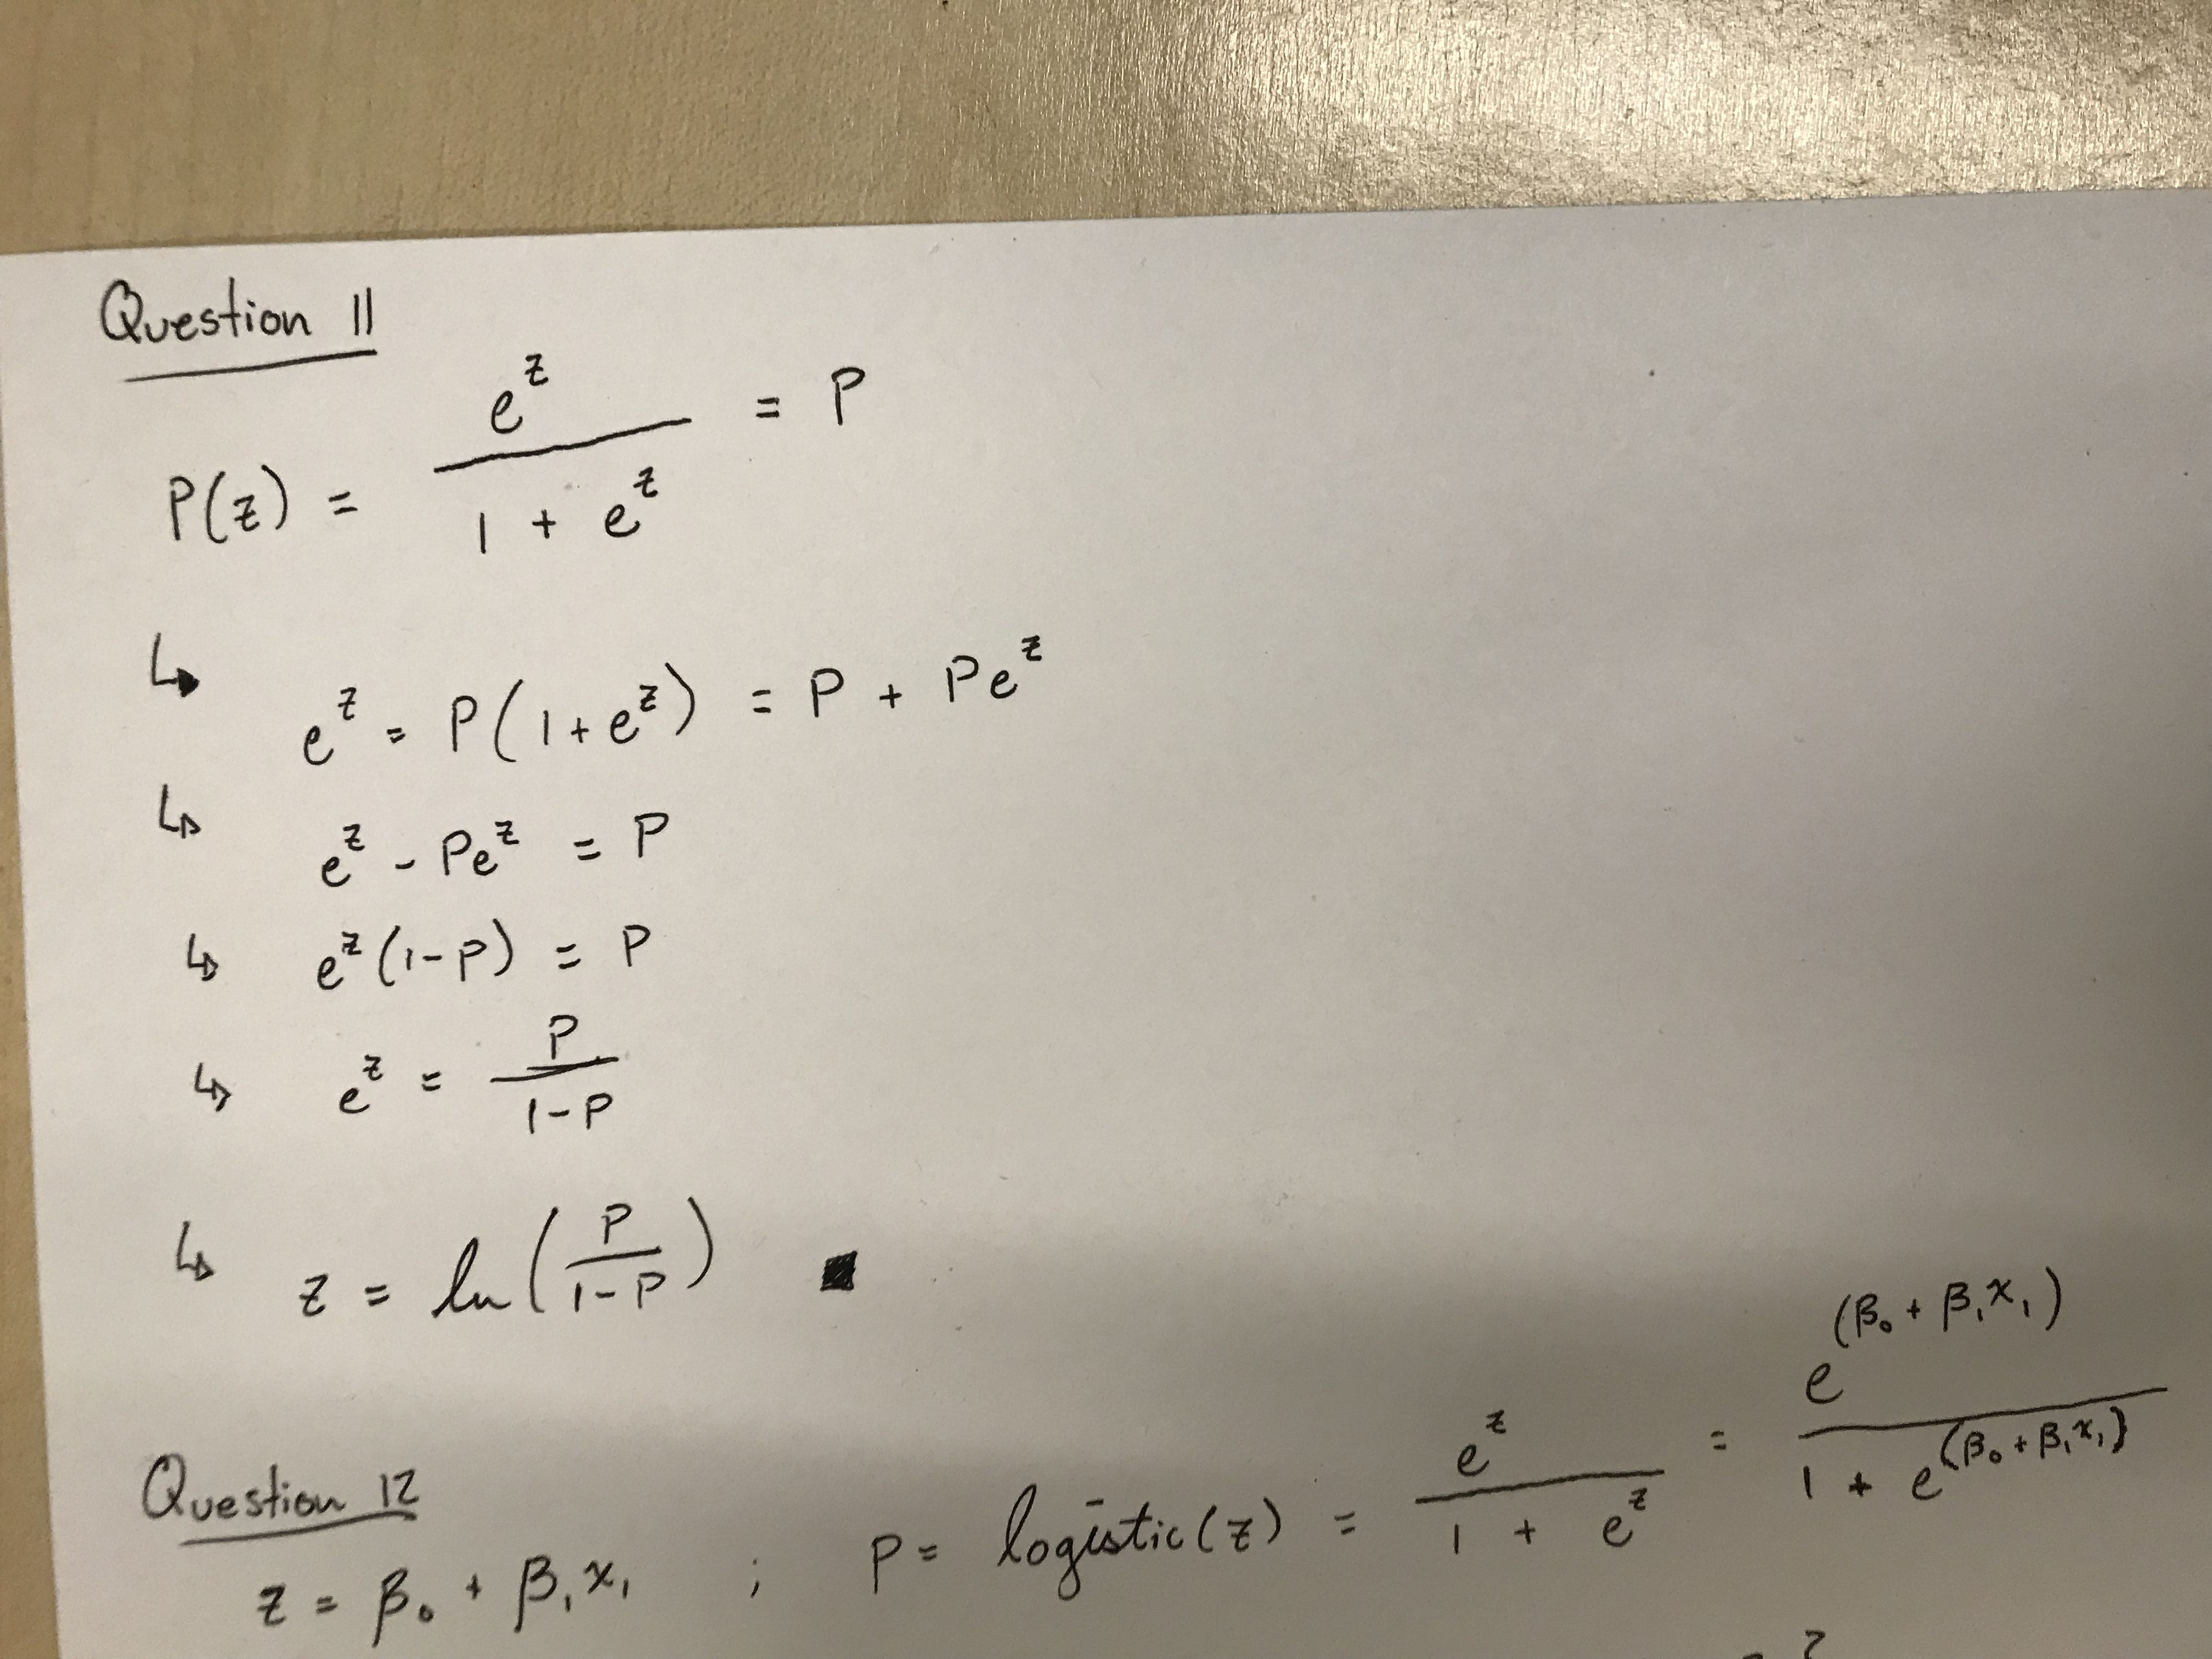 Question 11
P(z) = e^z / (1 + e^z) = P
↳ e^z = P(1 + e^z) = P + Pe^z
↳ e^z - Pe^z = P
↳ e^z(1-P) = P
↳ e^z = P / (1-P)
↳ z = ln(P / (1-P)) ■
Question 12
z = β₀ + β₁x₁ ; P = logistic(z) = e^z / (1 + e^z) = e^(β₀ + β₁x₁) / (1 + e^(β₀ + β₁x₁))